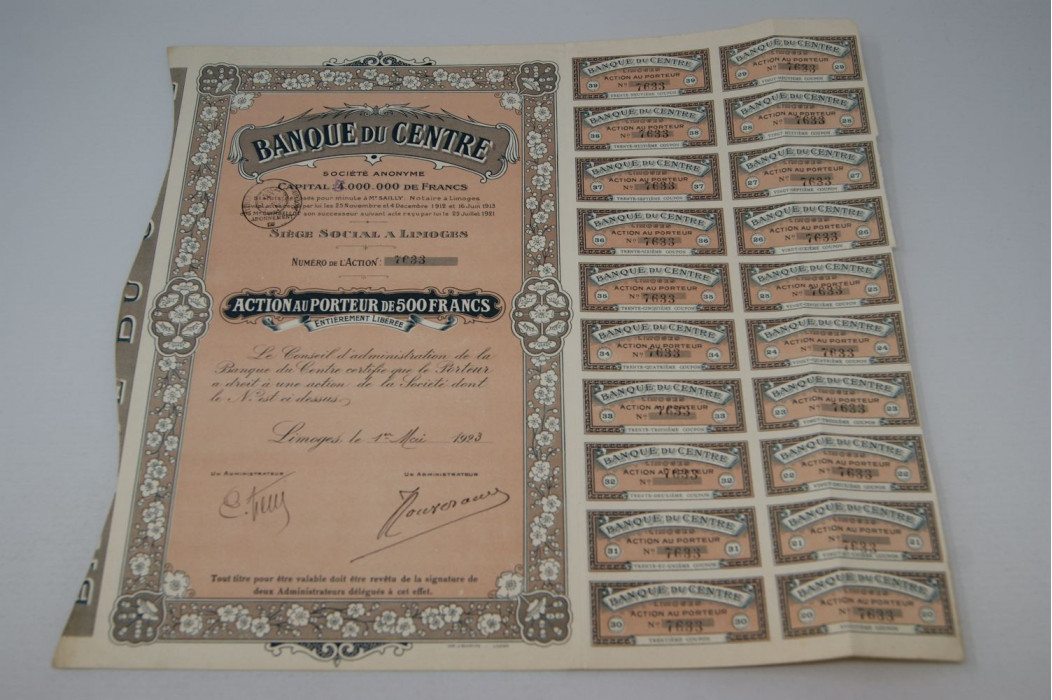 BANQUE DU CENTRE
SOCIÉTÉ ANONYME
CAPITAL 4.000.000 DE FRANCS
pour minute à Me SAILLY, Notaire à Limoges
par lui les 23 Novembre et 4 Décembre 1912 et 16 Juin 1913
son successeur suivant acte reçu par lui le 23 Juillet 1921
SIÈGE SOCIAL A LIMOGES
NUMÉRO DE L'ACTION: 7633
ACTION AU PORTEUR DE 500 FRANCS
ENTIÈREMENT LIBÉRÉE
Le Conseil d'administration de la
Banque du Centre certifie que le Porteur
a droit à une action de la Société dont
le No est ci dessus
Limoges, le 1er Mai 1923
UN ADMINISTRATEUR UN ADMINISTRATEUR
Tout titre pour être valable doit être revêtu de la signature de
deux Administrateurs délégués à cet effet.
BANQUE DU CENTRE
LIMOGES
ACTION AU PORTEUR
39 No 7633 39
TRENTE-NEUVIÈME COUPON
BANQUE DU CENTRE
ACTION AU PORTEUR
29 No 7633 29
VINGT-NEUVIÈME COUPON
BANQUE DU CENTRE
ACTION AU PORTEUR
38 No 7633 38
TRENTE-HUITIÈME COUPON
BANQUE DU CENTRE
ACTION AU PORTEUR
28 No 7633 28
VINGT-HUITIÈME COUPON
BANQUE DU CENTRE
ACTION AU PORTEUR
37 No 7633 37
TRENTE-SEPTIÈME COUPON
BANQUE DU CENTRE
ACTION AU PORTEUR
27 No 7633 27
VINGT-SEPTIÈME COUPON
BANQUE DU CENTRE
ACTION AU PORTEUR
36 No 7633 36
TRENTE-SIXIÈME COUPON
BANQUE DU CENTRE
ACTION AU PORTEUR
26 No 7633 26
VINGT-SIXIÈME COUPON
BANQUE DU CENTRE
ACTION AU PORTEUR
35 No 7633 35
TRENTE-CINQUIÈME COUPON
BANQUE DU CENTRE
ACTION AU PORTEUR
25 No 7633 25
VINGT-CINQUIÈME COUPON
BANQUE DU CENTRE
ACTION AU PORTEUR
34 No 7633 34
TRENTE-QUATRIÈME COUPON
BANQUE DU CENTRE
ACTION AU PORTEUR
24 No 7633 24
VINGT-QUATRIÈME COUPON
BANQUE DU CENTRE
ACTION AU PORTEUR
33 No 7633 33
TRENTE-TROISIÈME COUPON
BANQUE DU CENTRE
ACTION AU PORTEUR
23 No 7633 23
VINGT-TROISIÈME COUPON
BANQUE DU CENTRE
ACTION AU PORTEUR
32 No 7633 32
TRENTE-DEUXIÈME COUPON
BANQUE DU CENTRE
ACTION AU PORTEUR
22 No 7633 22
VINGT-DEUXIÈME COUPON
BANQUE DU CENTRE
ACTION AU PORTEUR
31 No 7633 31
TRENTE-ET-UNIÈME COUPON
BANQUE DU CENTRE
ACTION AU PORTEUR
21 No 7633 21
VINGT-ET-UNIÈME COUPON
BANQUE DU CENTRE
LIMOGES
ACTION AU PORTEUR
30 No 7633 30
TRENTIÈME COUPON
BANQUE DU CENTRE
LIMOGES
ACTION AU PORTEUR
20 No 7633 20
VINGTIÈME COUPON